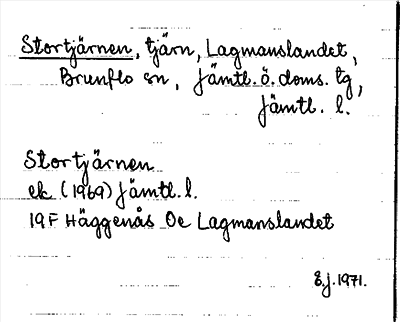 Stortjärnen, tjärn, Lagmanslandet,
Brunflo sn, Jämtl. ö. doms. tg,
Jämtl. l.
Stortjärnen
ek. (1969) Jämtl. l.
19F Häggenås 0e Lagmanslandet
E.J. 1971.